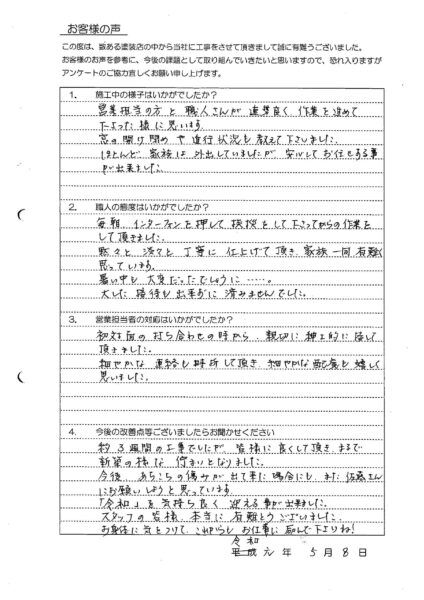 お客様の声
この度は、数ある塗装店の中から当社に工事をさせて頂きまして誠に有難うございました。
お客様のお声を参考に、今後の課題として取り組んでいきたいと思いますので、恐れ入りますが
アンケートのご協力宜しくお願い申し上げます。
1. 施工中の様子はいかがでしたか？
営業担当の方と職人さんが連携良く作業を進めて
下さった様に思います。
窓の開け閉めや進行状況も教えて下さいました。
ほとんど家族は外出していましたが、安心してお任せする事
が出来ました。
2. 職人の態度はいかがでしたか？
毎朝、インターフォンを押して挨拶をして下さってからの作業を
して頂きました。
黙々と淡々と丁寧に仕上げて頂き、家族一同有難く
思っています。
暑い中も大変だったでしょうに……。
大した接待も出来ずに済みませんでした。
3. 営業担当者の対応はいかがでしたか？
初対面の打ち合わせの時から、親切に紳士的に接して
頂きました。
細やかな連絡も時折して頂き、細やかな配慮も嬉しく
思いました。
4. 今後の改善点等ございましたらお聞かせください
約3週間の工事でしたが、皆様に良くして頂き、まるで
新築の様な仕上りとなりました。
今後、あちこちの傷みが出て来た場合にも、また佐藤さん
にお願いしようと思っています。
「令和」を気持ち良く迎える事が出来ました。
スタッフの皆様、本当に有難とうございました。
お身体に気をつけて、これからもお仕事に励んで下さいね！
令和
平成元年 5月8日